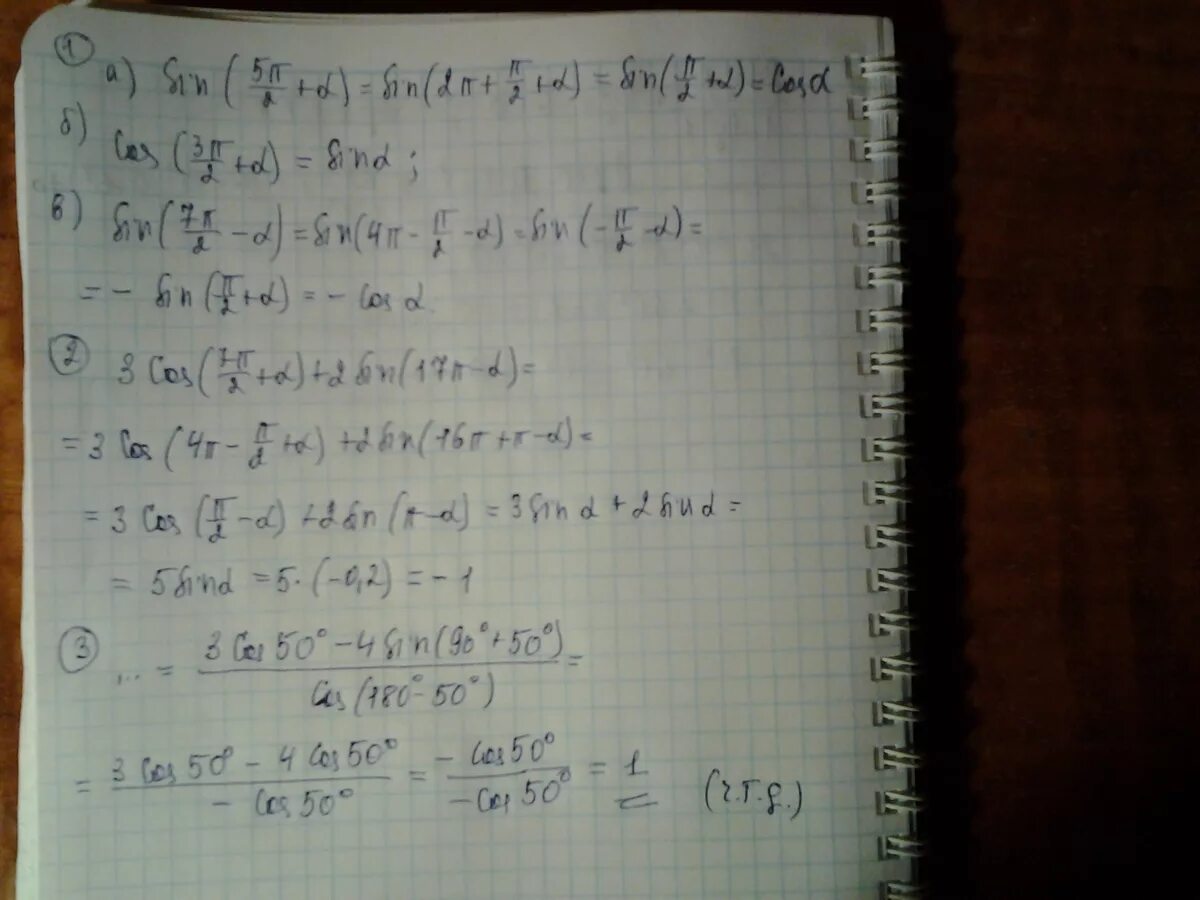 1
а) sin(5π/2 + α) = sin(2π + π/2 + α) = sin(π/2 + α) = cosα
б) cos(3π/2 + α) = sinα ;
в) sin(7π/2 − α) = sin(4π − π/2 − α) = sin(−π/2 − α) =
= − sin(π/2 + α) = − cos α.
2 3 cos(7π/2 + α) + 2 sin(17π − α) =
= 3 cos(4π − π/2 + α) + 2 sin(16π + π − α) =
= 3 cos(π/2 − α) + 2 sin(π − α) = 3 sin α + 2 sin α =
= 5 sinα = 5 · (−0,2) = − 1
3 ... = (3 cos 50° − 4 sin(90° + 50°))/(cos(180° − 50°)) =
= (3 cos 50° − 4 cos 50°)/(− cos 50°) = (− cos 50°)/(− cos 50°) = 1 (ч.т.д.)